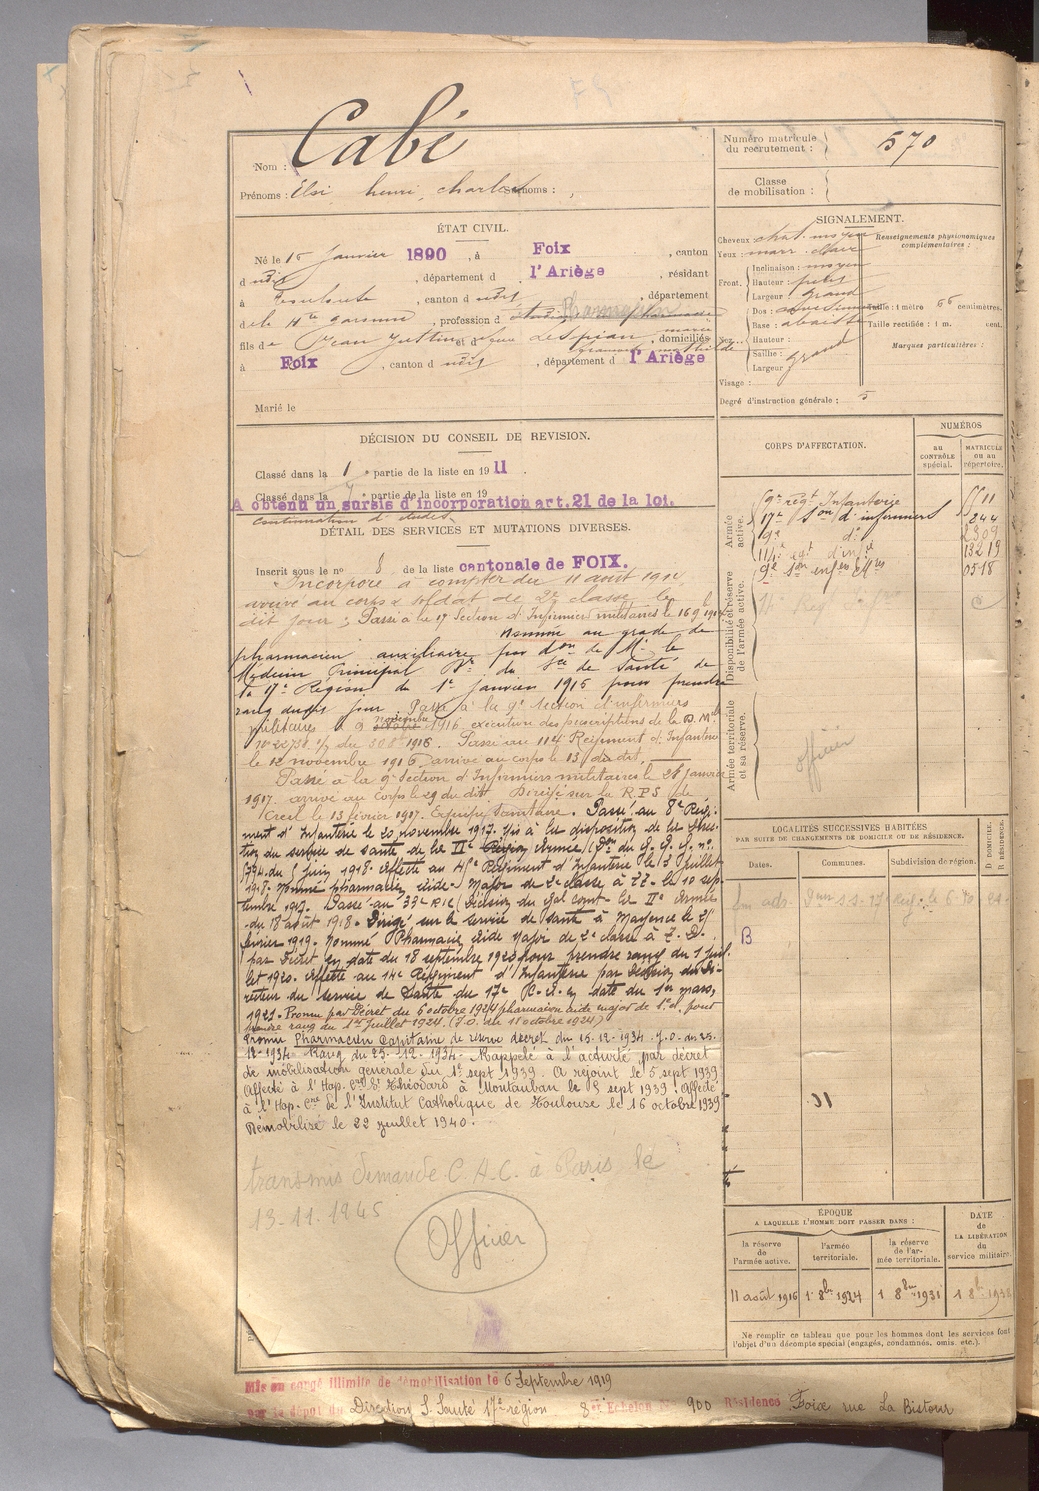 Nom : Cabé
Prénoms : Eloi henri, charles Surnoms : ,
Numéro matricule du recrutement : 570
Classe de mobilisation :
ÉTAT CIVIL.
Né le 16 Janvier 1890, à Foix, canton
d udit, département d l'Ariège, résidant
à Toulouse, canton d udit, département
de la Hte garonne, profession d étudiant en pharmacie Pharmacien
fils de Jean Justin et d marie domiciliés
à Foix, canton d udit, département d l'Ariège
Marié le
SIGNALEMENT.
Cheveux : chat. moyen
Yeux : marr. clair
Renseignements physionomiques complémentaires :
Front. Inclinaison : moyen
Hauteur : petit
Largeur : grand
Nez. Dos :
Base : abaissé
Hauteur :
Saillie :
Largeur : grand
Taille : 1 mètre 66 centimètres.
Taille rectifiée : 1 m. cent.
Marques particulières :
Visage :
Degré d'instruction générale : 5
DÉCISION DU CONSEIL DE REVISION.
Classé dans la 1e partie de la liste en 1911.
Classé dans la 7e partie de la liste en 19
A obtenu un sursis d'incorporation art. 21 de la loi.
continuation d'études
DÉTAIL DES SERVICES ET MUTATIONS DIVERSES.
Inscrit sous le no 8 de la liste cantonale de FOIX.
Incorporé à compter du 11 août 1914
arrivé au corps & soldat de 2e classe le
dit jour ; Passé à la 17e Section d'Infirmiers militaires le 16
Nommé au grade de
pharmacien auxiliaire par don de Mr le
Médecin Principal Dr du Sce de Santé de
la 17e Région du 1er Janvier 1916 pour prendre
rang dudit jour. Passé à la 9e Section d'infirmiers
militaires le 9 novembre 1916 exécution des prescriptions de la D.M.le
no 22758. Passé au 114e Régiment d'Infanterie
le 12 novembre 1916 arrivé au corps le 13 du dit.
Passé à la 9e Section d'Infirmiers militaires le 28 janvier
1917. arrivé au corps le 29 du dit. Dirigé sur la R.P.S. de
Creil le 13 février 1917. Equipe Sanitaire. Passé au 8e Régi-
ment d'Infanterie le 20 novembre 1917. Mis à la disposition de la direc-
tion du service de santé de la IIe Armée
du 5 juin 1918. Affecté au Régiment d'Infanterie le 3 juillet
1918. Nommé pharmacien aide-Major de 2e classe à T.T. le 10 sep-
tembre 1917. Passé au 33e R.I.C (Décision du Gal Comt la IIe Armée
du 18 août 1918. Dirigé sur le service de santé à Mayence le 21
février 1919. Nommé Pharmacien Aide Major de 2e classe à T.D.
par Décret en date du 18 septembre 1920 pour prendre rang du 1 juil-
let 1920. Affecté au 14e Régiment d'Infanterie par décision du Di-
recteur du service de Santé du 17e C.A. en date du 1er mars
1921. Promu par Décret du 6 octobre 1924 pharmacien aide major de 1e cl. pour
prendre rang du 1er juillet 1924. (J.O. du 11 octobre 1924)
Promu Pharmacien Capitaine de réserve décret du 15-12-1934 J.O. du 25-
12-1934 Rang du 25-12-1934. Rappelé à l'activité par décret
de mobilisation générale du 1er sept 1939. A rejoint le 5 sept 1939
Affecté à l'Hop. Cre St Théodard à Montauban le 5 sept 1939. Affecté
à l'Hop. Cre de l'Institut Catholique de Toulouse le 16 octobre 1939
Démobilisé le 22 juillet 1940.
transmis demande C.A.C. à Paris le
13-11-1945
Officier
CORPS D'AFFECTATION.
NUMÉROS
au CONTRÔLE spécial.
MATRICULE ou au répertoire.
Armée active.
9e regt Infanterie 5511
17e Son d'infirmiers 244
9e do 2309
114e regt d'infie 13219
9e Son enfers Mres 0518
Disponibilité et réserve de l'armée active.
Armée territoriale et sa réserve.
officier
LOCALITÉS SUCCESSIVES HABITÉES
PAR SUITE DE CHANGEMENTS DE DOMICILE OU DE RÉSIDENCE.
Dates.
Communes.
Subdivision de région.
D DOMICILE. R RÉSIDENCE.
B
ÉPOQUE
A LAQUELLE L'HOMME DOIT PASSER DANS :
la réserve de l'armée active.
l'armée territoriale.
la réserve de l'armée territoriale.
DATE de LA LIBÉRATION du service militaire.
11 août 1916
1 8bre 1924
1 8bre 1931
1 8bre 1938
Ne remplir ce tableau que pour les hommes dont les services font
l'objet d'un décompte spécial (engagés, condamnés, omis, etc.).
Mis en congé illimité de démobilisation le 6 Septembre 1919
par le dépôt du Direction S. Santé 17e région 8e Echelon No 900 Résidence Foix rue La Bistour